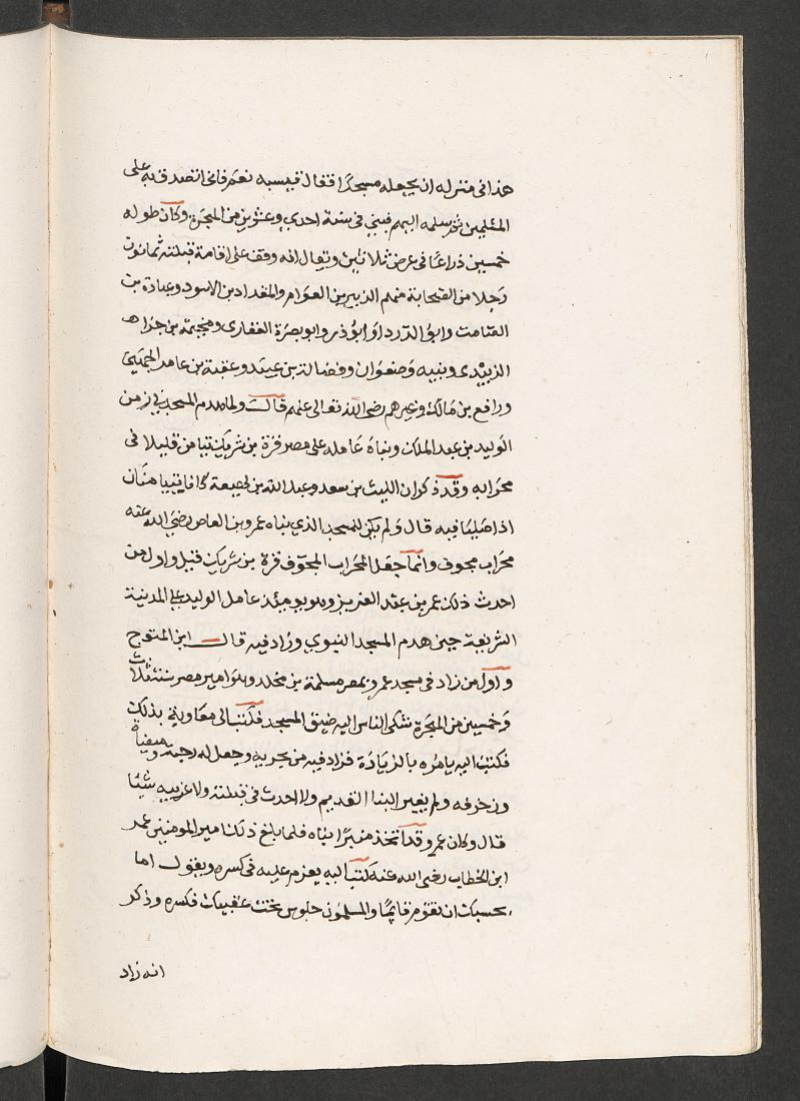 هذا في منزله ان يجعله مسجدًا فقال قيسبه نعم فاني اتصدق به على
المسلمين ثم سلمه اليهم فبني في سنة احدي وعشرين من الهجرة وكان طوله
خمسين ذراعًا في عرض ثلاثين ويقال انه وقف على اقامة قبلته ثمانون
رجلا من الصحابة منهم الزبير بن العوام والمقداد بن الاسود وعبادة بن
الصامت وابو الدرداء وابو ذر وابو بصرة الغفاري ومحمية بن جزاء
الزبيدي ونبيه وصفوان وفضالة بن عبيد وعقبة بن عامر الجهني
ورافع بن مالك وغيرهم رضي الله تعالى عنهم قالت ولما هدم المسجد في زمن
الوليد بن عبد الملك وبناه عامله على مصر قرة بن شريك تيامن قليلا في
محرابه وقد ذكر ان الليث بن سعد وعبد الله بن لهيعة كانا يتيامنان
اذا صليا فيه قال ولم يكن للمسجد الذي بناه عمرو بن العاص رضي الله عنه
محراب مجوف وانما جعل المحراب المجوف قرة بن شريك قبل واول من
احدث ذلك عمر بن عبد العزيز وهو يومئذ عامل الوليد على المدينة
الشريفة حين هدم المسجد النبوي وزاد فيه قال ابن المتوج
واول من زاد في مسجد عمرو بمصر مسلمة بن مخلد وهو امير مصر سنة ثلاث
وخمسين من الهجرة شكى الناس اليه ضيق المسجد فكتب الى معاوية بذلك
فكتب اليه يامره بالزيادة فزاد فيه من بحريه وجعل له رحبة وبيضه
وزخرفه ولم يغير البنا القديم ولا احدث في قبلته ولا غربيه شيئا
قال وكان عمرو قد اتخذ منبرًا بناه فلما بلغ ذلك امير المومنين عمر
ابن الخطاب رضي الله عنه كتب اليه يعزم عليه في كسره ويقول اما
بحسبك ان تقوم قايمًا والمسلمون جلوس تحت عقبيك فكسره وذكر
انه زاد